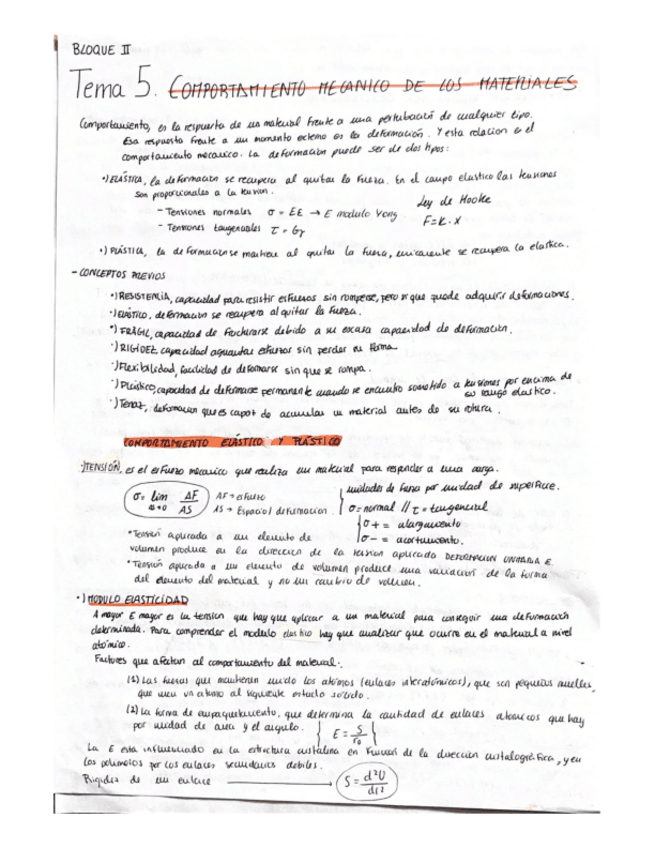 BLOQUE II
Tema 5. COMPORTAMIENTO MECANICO DE LOS MATERIALES
Comportamiento, es la respuesta de un material frente a una perturbación de cualquier tipo.
Esa respuesta frente a un momento externo es la deformación. Y esta relacion es el
comportamiento mecanico. La deformacion puede ser de dos tipos:
•) ELÁSTICA, la deformación se recupera al quitar la fuerza. En el campo elastico las tensiones
son proporcionales a la tension.
Ley de Hooke
- Tensiones normales σ = Eε → E modulo Yong
F=K·X
- Tensiones tangenuales τ = Gγ
•) PLÁSTICA, la deformacion se mantiene al quitar la fuerza, unicamente se recupera la elastica.
- CONCEPTOS PREVIOS
•) RESISTENCIA, capacidad para resistir esfuerzos sin romperse, pero si que puede adquirir deformaciones.
•) ELÁSTICO, deformación se recupera al quitar la fuerza.
•) FRÁGIL, capacidad de fracturarse debido a su escasa capacidad de deformación.
•) RIGIDEZ, capacidad aguantar esfuerzos sin perder su forma
•) Flexibilidad, facilidad de deformarse sin que se rompa.
•) Plástico, capacidad de deformarse permanente cuando se encuentra sometido a tensiones por encima de
su rango elastico.
•) Tenaz, deformacion que es capaz de acumular un material antes de su rotura.
COMPORTAMIENTO ELÁSTICO Y PLÁSTICO
•) TENSIÓN, es el esfuerzo mecanico que realiza un material para responder a una carga.
σ = lim ΔF/ΔS
ΔS→0
ΔF → esfuerzo
ΔS → Espacio deformacion
unidades de fuerza por unidad de superficie.
σ = normal // τ = tangencial
σ+ = alargamiento
σ- = acortamiento.
• Tensión aplicada a un elemento de
volumen produce en la direccion de la tension aplicada DEFORMACION UNITARIA E
• Tensión aplicada a un elemento de volumen produce una variación de la forma
del elemento del material y no un cambio de volumen.
•) MODULO ELASTICIDAD
A mayor E mayor es la tension que hay que aplicar a un material para conseguir una deformación
determinada. Para comprender el modulo elastico hay que analizar que ocurre en el material a nivel
atómico.
Factores que afectan al comportamiento del material:
(1) Las fuerzas que mantienen unido los atomos (enlaces interatómicos), que son pequeños muelles,
que unen un atomo al siguiente estado solido.
(2) La forma de empaquetamiento, que determina la cantidad de enlaces atomicos que hay
por unidad de area y el angulo. { E = S/r₀ }
La E esta influenciado en la estructura cristalina en funcion de la direccion cristalográfica, y en
los polimeros por los enlaces secundarios debiles.
Rigidez de un enlace → S = d²U/dr²